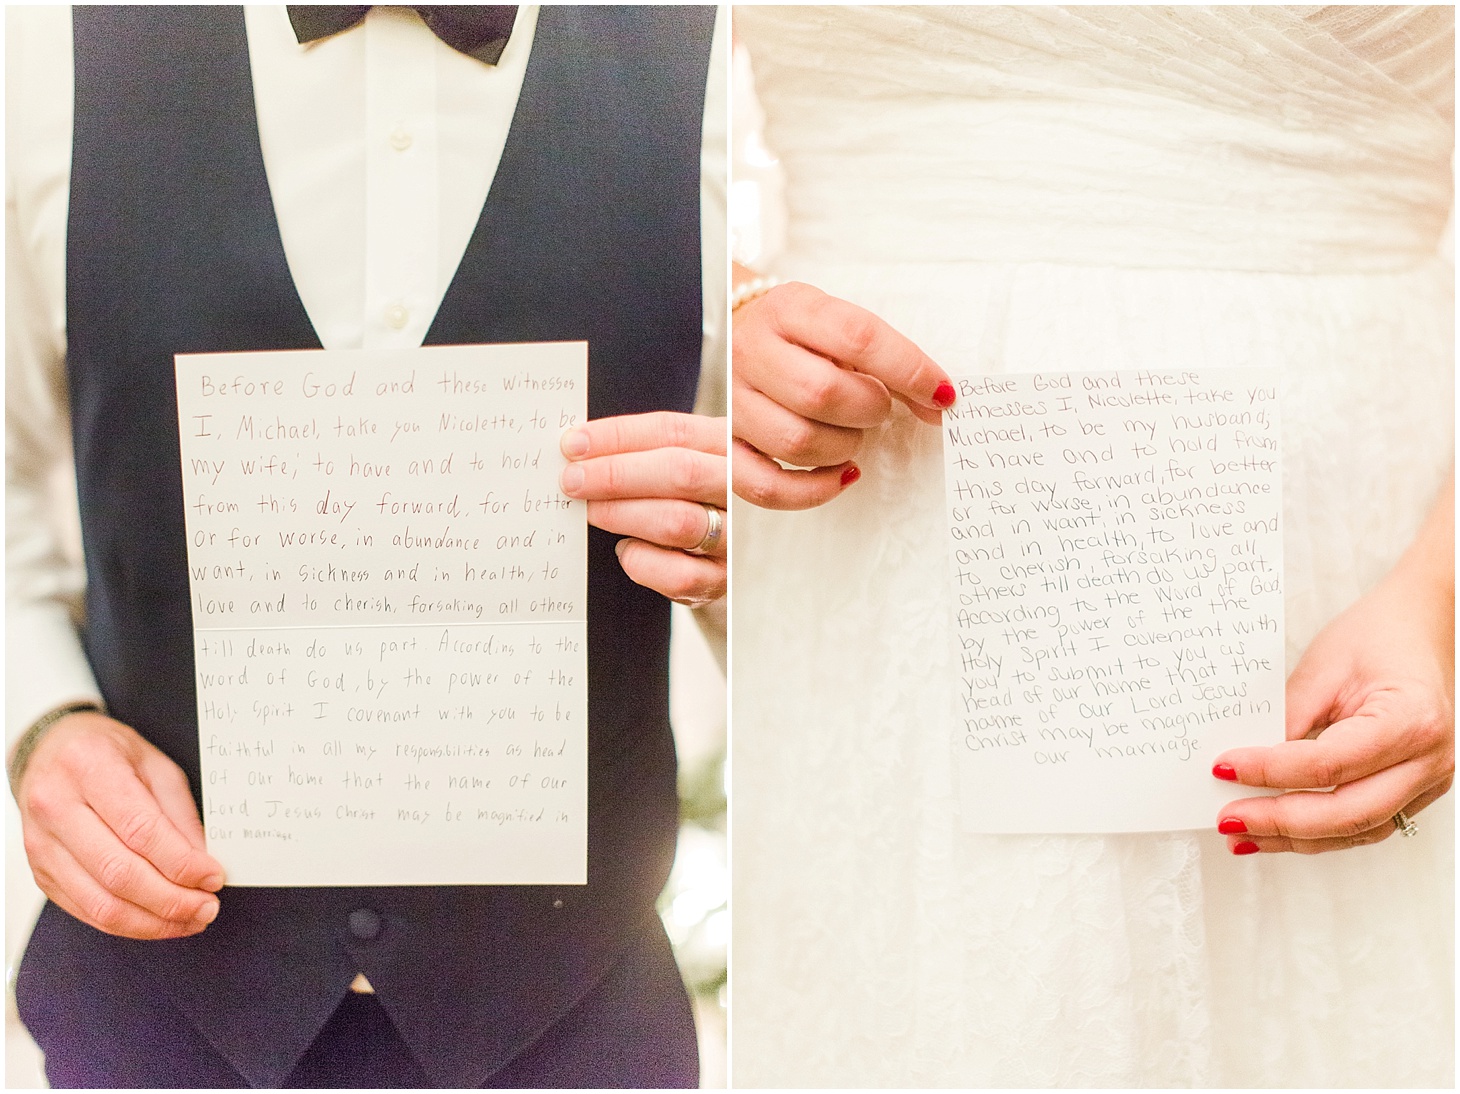 Before God and these witnesses
I, Michael, take you Nicolette, to be
my wife; to have and to hold
from this day forward, for better
or for worse, in abundance and in
want, in sickness and in health, to
love and to cherish, forsaking all others
till death do us part. According to the
word of God, by the power of the
Holy Spirit I covenant with you to be
faithful in all my responsibilities as head
of our home that the name of our
Lord Jesus Christ may be magnified in
our marriage.
Before God and these
witnesses I, Nicolette, take you
Michael, to be my husband;
to have and to hold from
this day forward, for better
or for worse, in abundance
and in want, in sickness
and in health, to love and
to cherish, forsaking all
others till death do us part.
According to the Word of God,
by the power of the the
Holy Spirit I covenant with
you to submit to you as
head of our home that the
name of our Lord Jesus
Christ may be magnified in
our marriage.